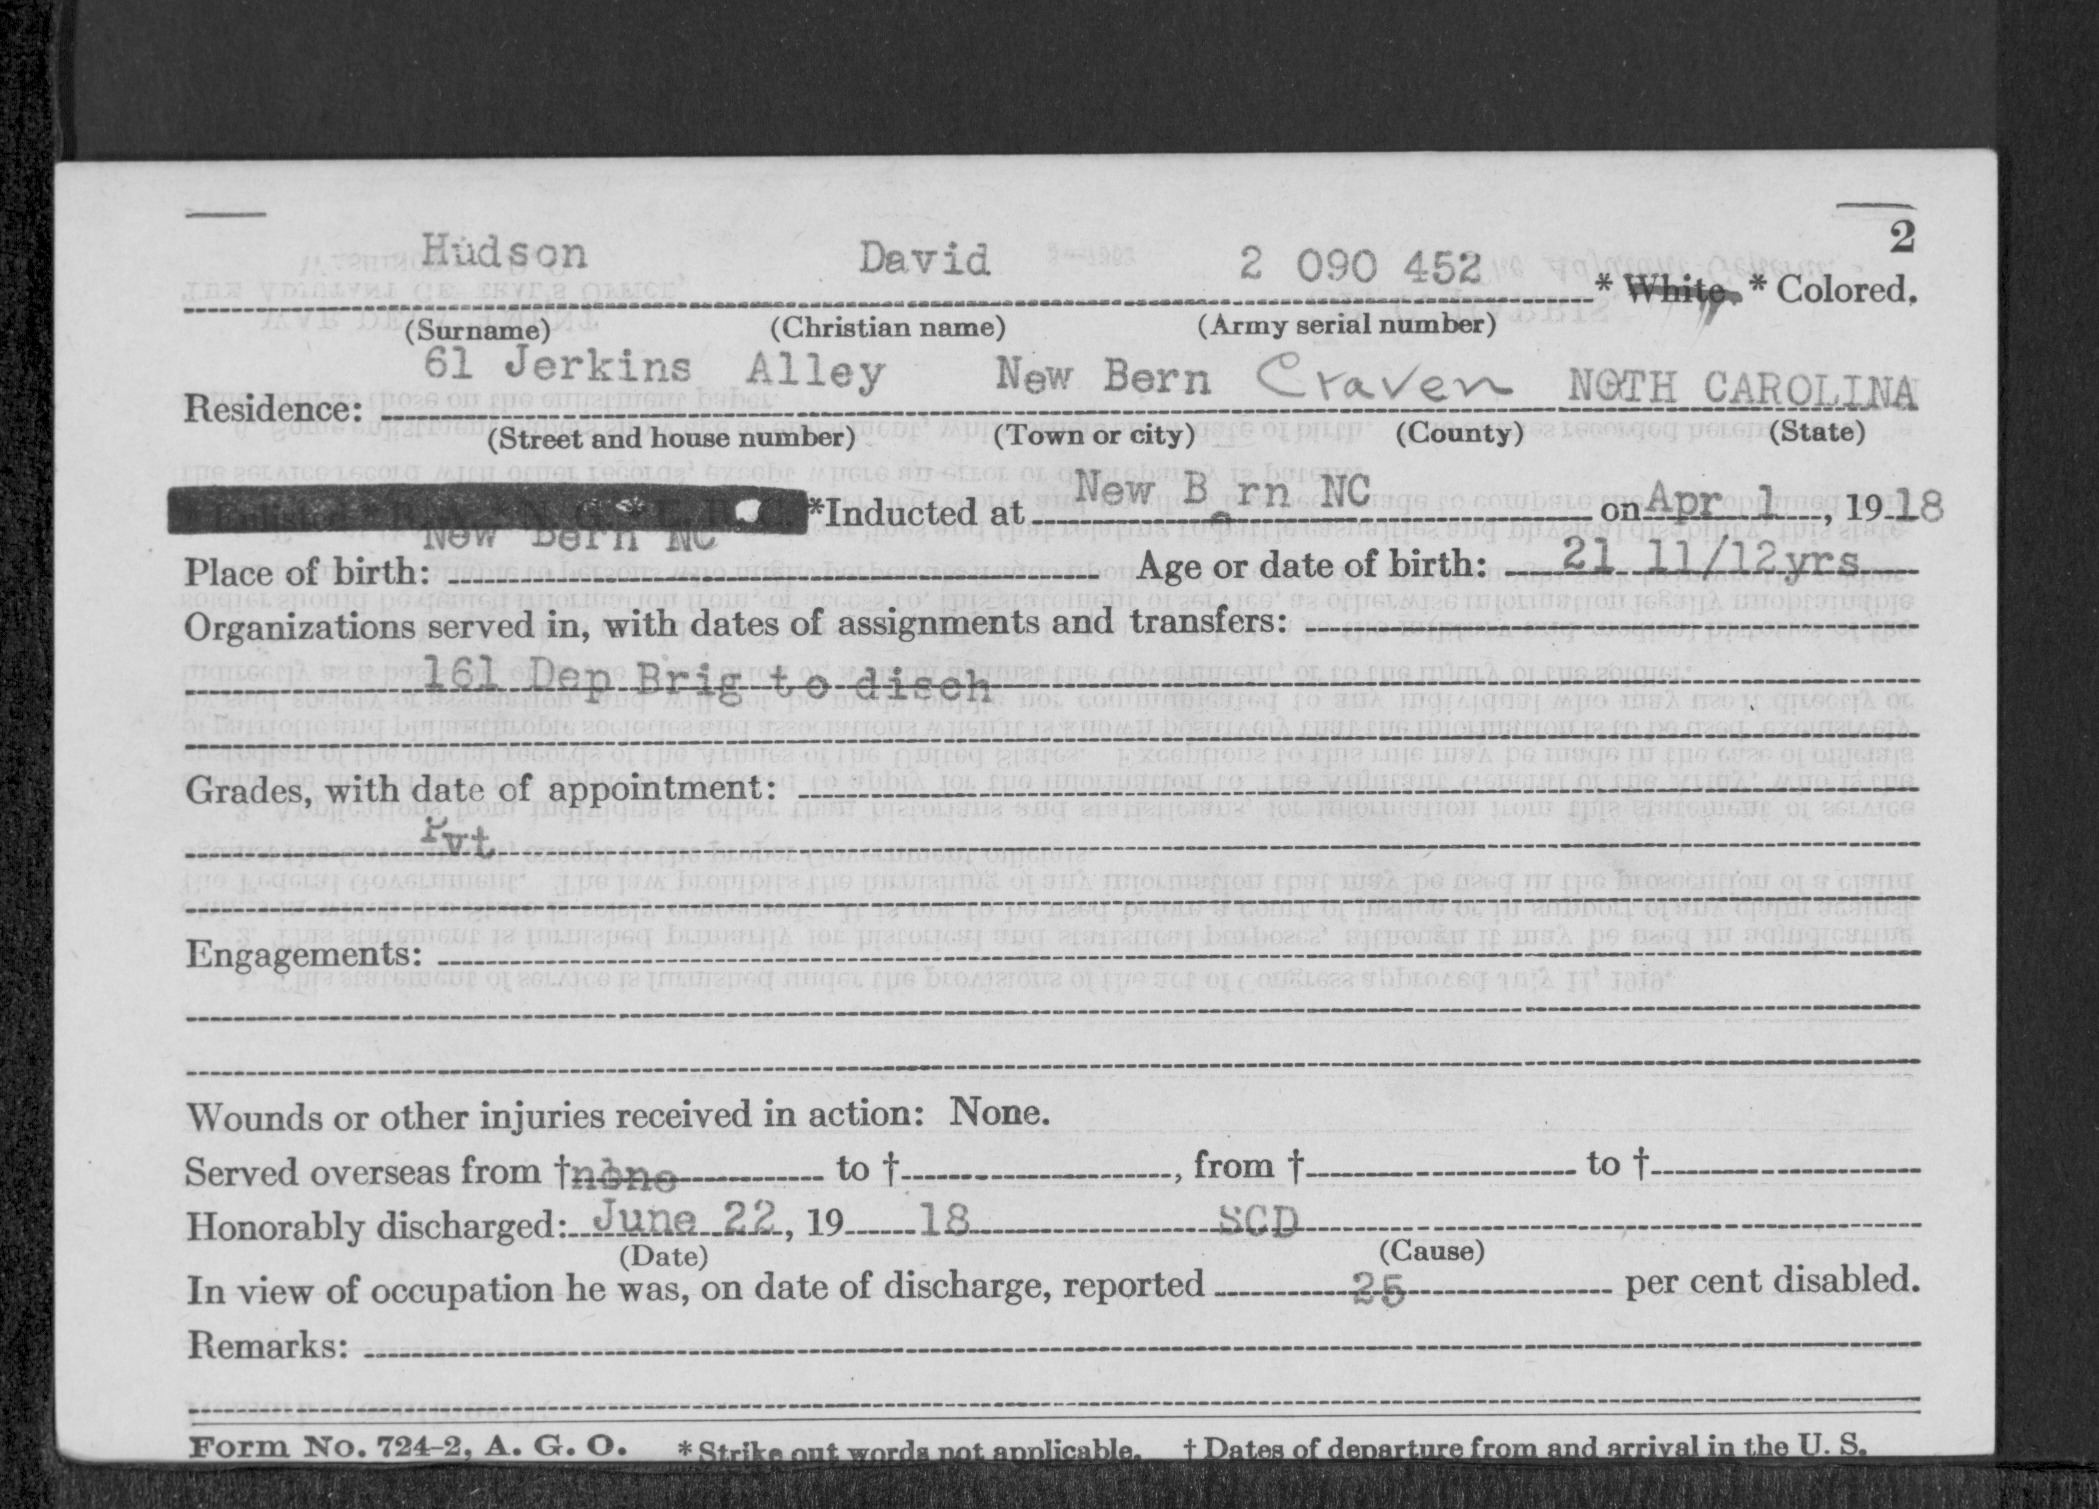 2
Hudson David 2 090 452 * White, * Colored.
(Surname) (Christian name) (Army serial number)
61 Jerkins Alley New Bern Craven NOTH CAROLINA
Residence:
(Street and house number) (Town or city) (County) (State)
Enlisted * R. A. * N. G. * E. R. C. *Inducted at New B rn NC on Apr 1, 19 18
e
New Bern NC
Place of birth: Age or date of birth: 21 11/12yrs
Organizations served in, with dates of assignments and transfers:
161 Dep Brig to disch
Grades, with date of appointment:
Pvt
Engagements:
Wounds or other injuries received in action: None.
Served overseas from †none to †, from † to †
Honorably discharged: June 22, 19 18 SCD
(Date) (Cause)
In view of occupation he was, on date of discharge, reported 25 per cent disabled.
Remarks:
Form No. 724-2, A. G. O. *Strike out words not applicable. † Dates of departure from and arrival in the U. S.